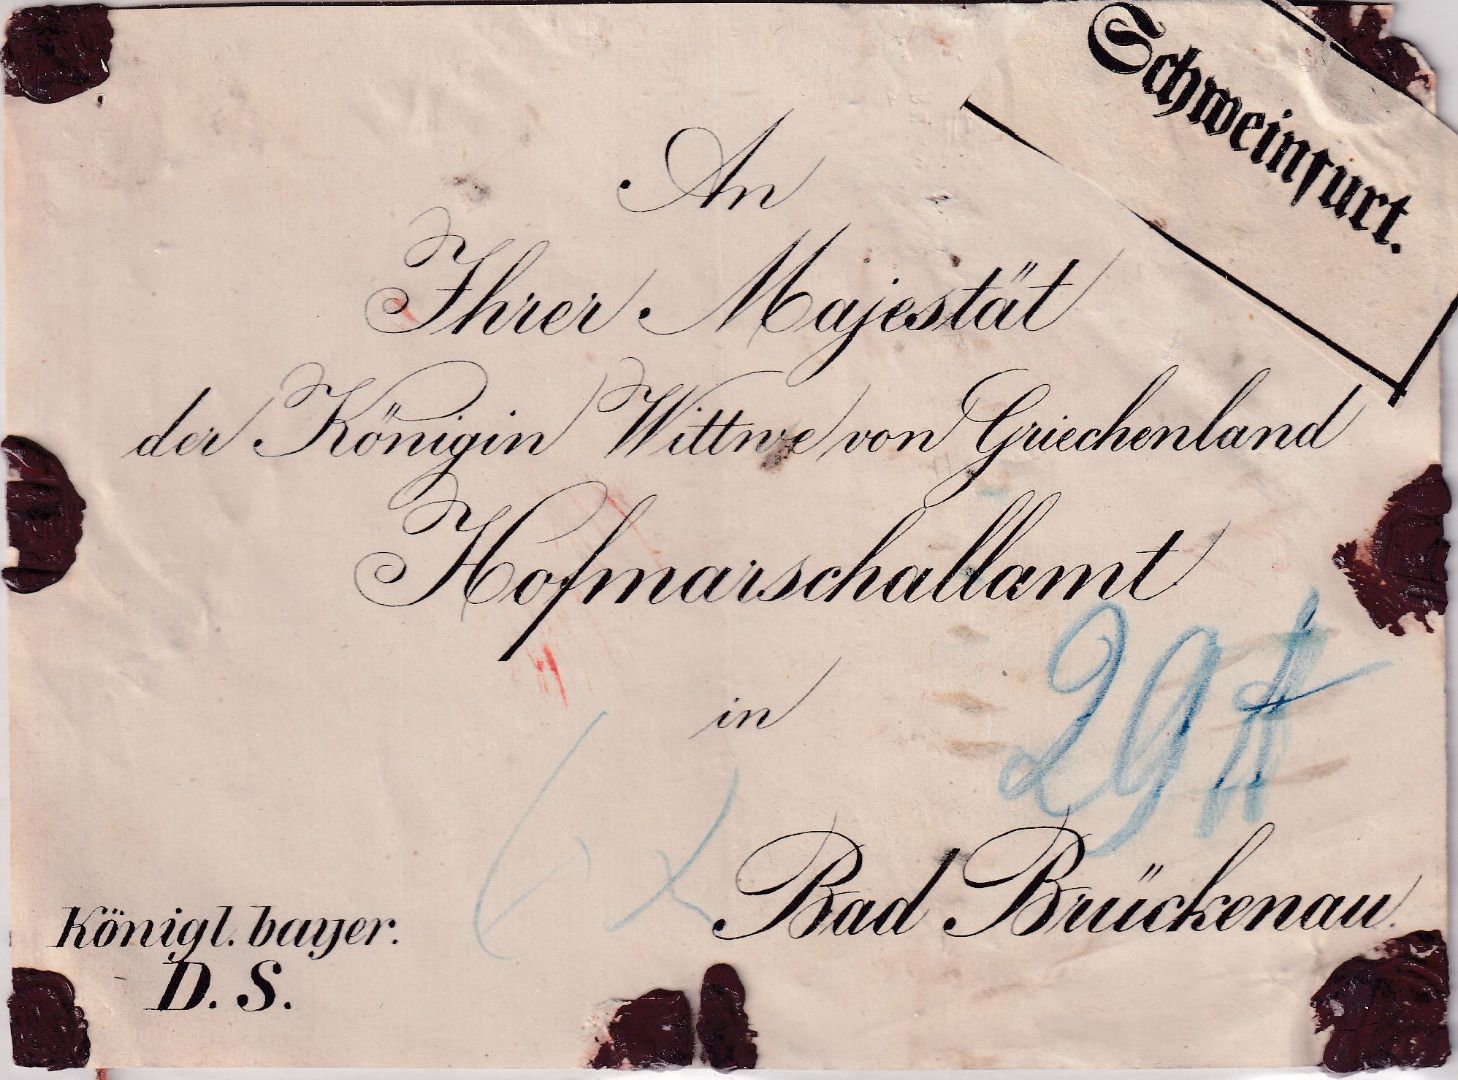 Schweinfurt.
An
Ihrer Majestät
der Königin Wittwe von Griechenland
Hofmarschallamt
in
29 ℔
Bad Brückenau.
Königl. bayer.
D. S.